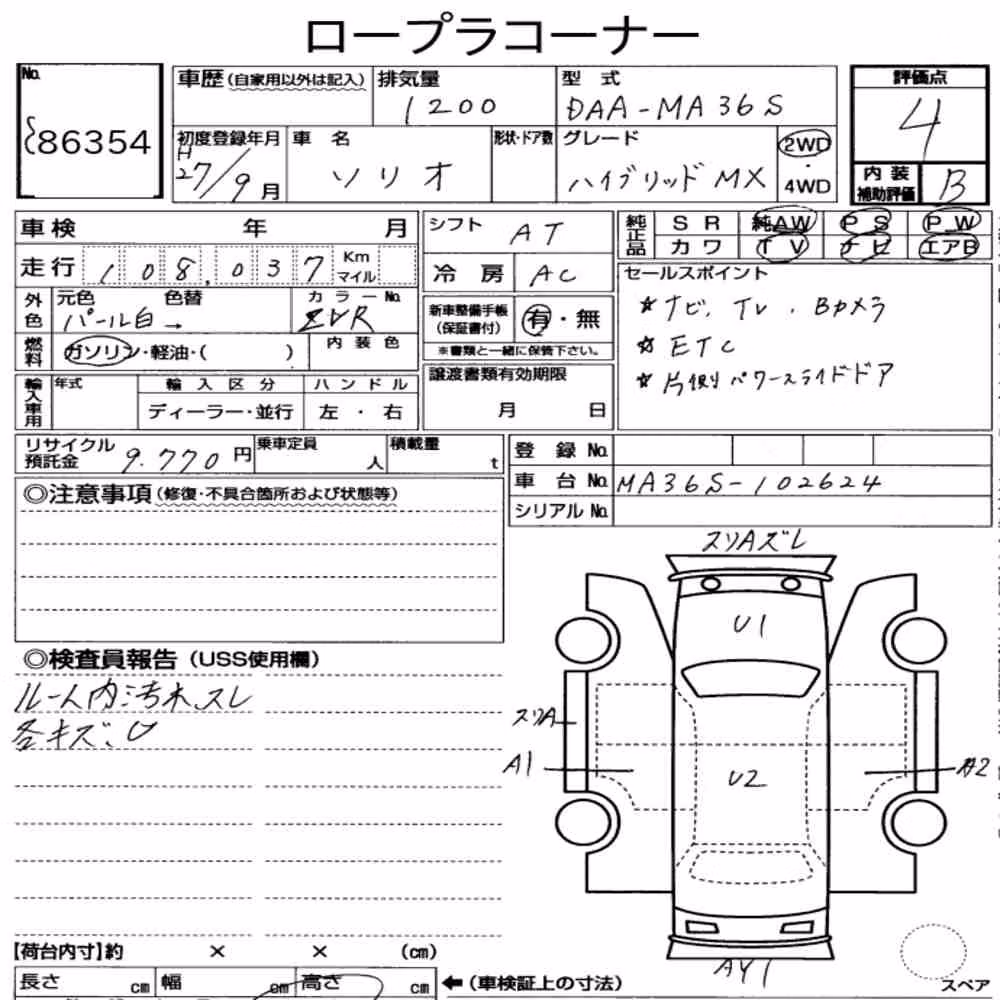 ロープラコーナー
No.
86354
車歴(自家用以外は記入)
排気量
1200
型 式
DAA-MA36S
評価点
4
初度登録年月
H
27/9月
車 名
ソリオ
形状・ドア数
グレード
ハイブリッドMX
2WD
・
4WD
内装
補助評価
B
車検 年 月
走行 108,037 Km
マイル
シフト AT
冷房 AC
純正品
SR 純AW PS PW
カワ TV ナビ エアB
セールスポイント
☆ナビ、TV、Bカメラ
☆ETC
☆片側パワースライドドア
外色
元色 色替
パール白→
カラーNo.
ZVR
新車整備手帳
(保証書付)
有・無
※書類と一緒に保管下さい。
燃料
ガソリン・軽油・( )
内装色
輸入車用
年式
輸入区分
ハンドル
ディーラー・並行
左・右
譲渡書類有効期限
月 日
リサイクル
預託金
9.770円
乗車定員
人
積載量
t
登録No.
車台No. MA36S-102624
シリアルNo.
◎注意事項(修復・不具合箇所および状態等)
◎検査員報告(USS使用欄)
ルーム内汚れ、スレ
各キズ、U
スリAズレ
U1
スリA
A1
U2
A2
AY1
スペア
【荷台内寸】約 × × (cm)
長さ cm 幅 cm 高さ cm
←(車検証上の寸法)